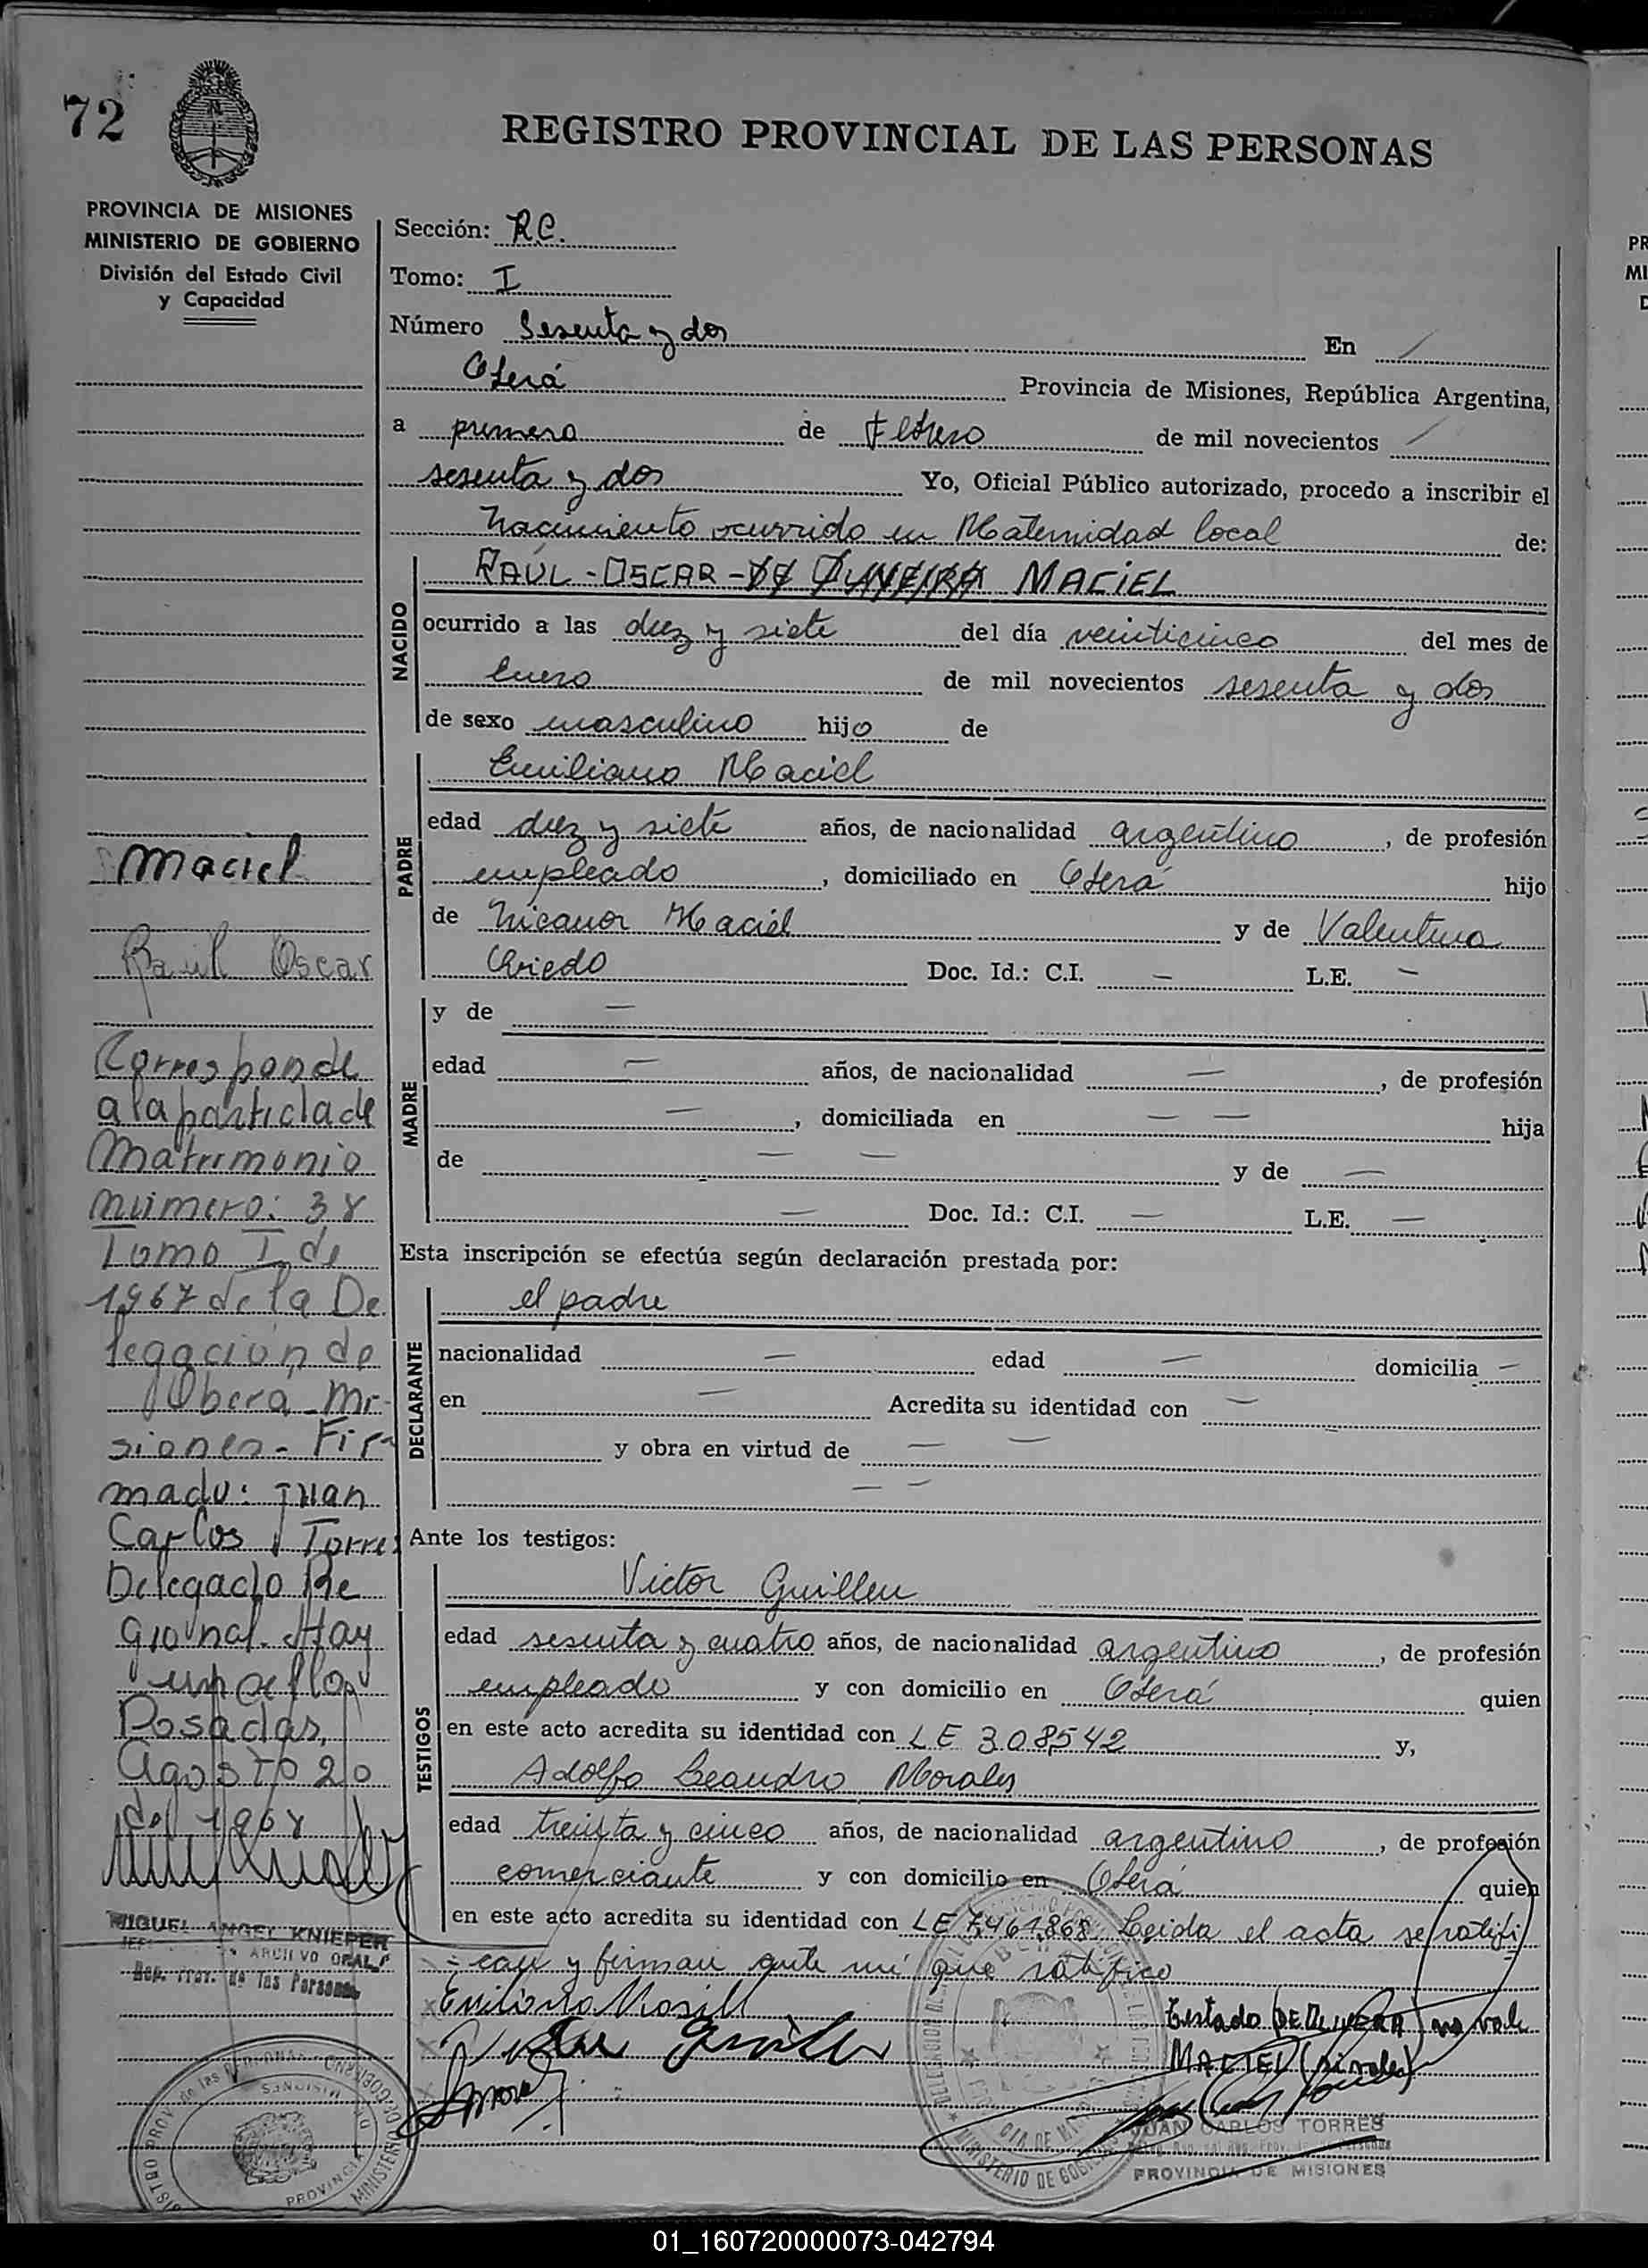 72
REGISTRO PROVINCIAL DE LAS PERSONAS
PROVINCIA DE MISIONES
MINISTERIO DE GOBIERNO
División del Estado Civil
y Capacidad
Sección: R.C.
Tomo: I
Número Sesenta y dos En
Oberá Provincia de Misiones, República Argentina,
a primero de Febrero de mil novecientos
sesenta y dos Yo, Oficial Público autorizado, procedo a inscribir el
Nacimiento ocurrido en Maternidad local de:
NACIDO
RAÚL-OSCAR- MACIEL
ocurrido a las diez y siete del día veinticinco del mes de
Enero de mil novecientos sesenta y dos
de sexo masculino hijo de
PADRE
Emiliano Maciel
edad diez y siete años, de nacionalidad argentino, de profesión
empleado, domiciliado en Oberá hijo
de Nicanor Maciel y de Valentina
Oviedo Doc. Id.: C.I. — L.E. —
MADRE
y de —
edad — años, de nacionalidad —, de profesión
—, domiciliada en — — hija
de — — y de —
— Doc. Id.: C.I. — L.E. —
Esta inscripción se efectúa según declaración prestada por:
DECLARANTE
el padre
nacionalidad — edad — domicilia —
en — Acredita su identidad con —
y obra en virtud de — —
— —
Ante los testigos:
TESTIGOS
Victor Guillen
edad sesenta y cuatro años, de nacionalidad argentino, de profesión
empleado y con domicilio en Oberá quien
en este acto acredita su identidad con LE 308542 y,
Adolfo Leandro Morales
edad treinta y cinco años, de nacionalidad argentino, de profesión
comerciante y con domicilio en Oberá quien
en este acto acredita su identidad con LE 7.461.868 Leida el acta se ratifi
= can y firman ante mí que ratifico
Testado no vale
MACIEL (si vale)
JUAN CARLOS TORRES
PROVINCIA DE MISIONES
Maciel
Raul Oscar
Corresponde
a la partida de
Matrimonio
número: 38
Tomo I de
1967 de la De
legación de
Oberá Mi-
siones- Fir
mado: Juan
Carlos Torres
Delegado Re
gional. Hay
un sello
Posadas,
Agosto 20
de 1968
MIGUEL ANGEL KNIEPER
JEFE ARCHIVO GRAL.
Reg. Prov. de las Personas
01_160720000073-042794